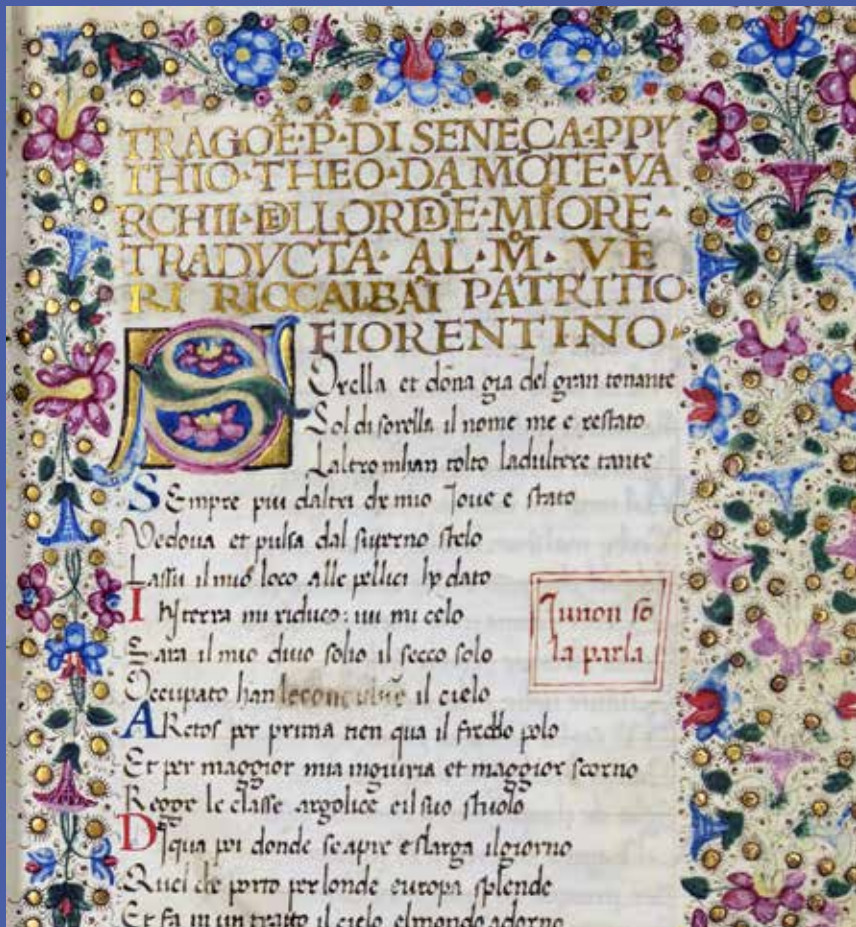 TRAGOĒ·P̄·DI SENECA·P PY
THIO·THEO·DA MŌTE·VA
RCHII·DELLORDIE·MIORE·
TRADVCTA·AL·M̊·VE
RI RICCALBAĪ PATRITIO
FIORENTINO·
SOrella et dōna gia del gran tonante
Sol di sorella il nome me e restato
Laltro mhan tolto ladultere tante
SEmpre piu daltri che mio Ioue e stato
Vedoua et pulsa dal superno stelo
Lassu il mio loco alle pellici ho dato
IN terra mi riduco: iui mi celo
Sara il mio diuo solio il secco solo
Occupato han le concubine il cielo
ARctos per prima tien qua il freddo polo
Et per maggior mia ingiuria et maggior scorno
Regge le classe argolice e il suo stuolo
DI qua poi donde se apre e slarga il giorno
Quel che porto per londe europa splende
Et fa in un tratto il cielo el mondo adorno
Iunon so
la parla